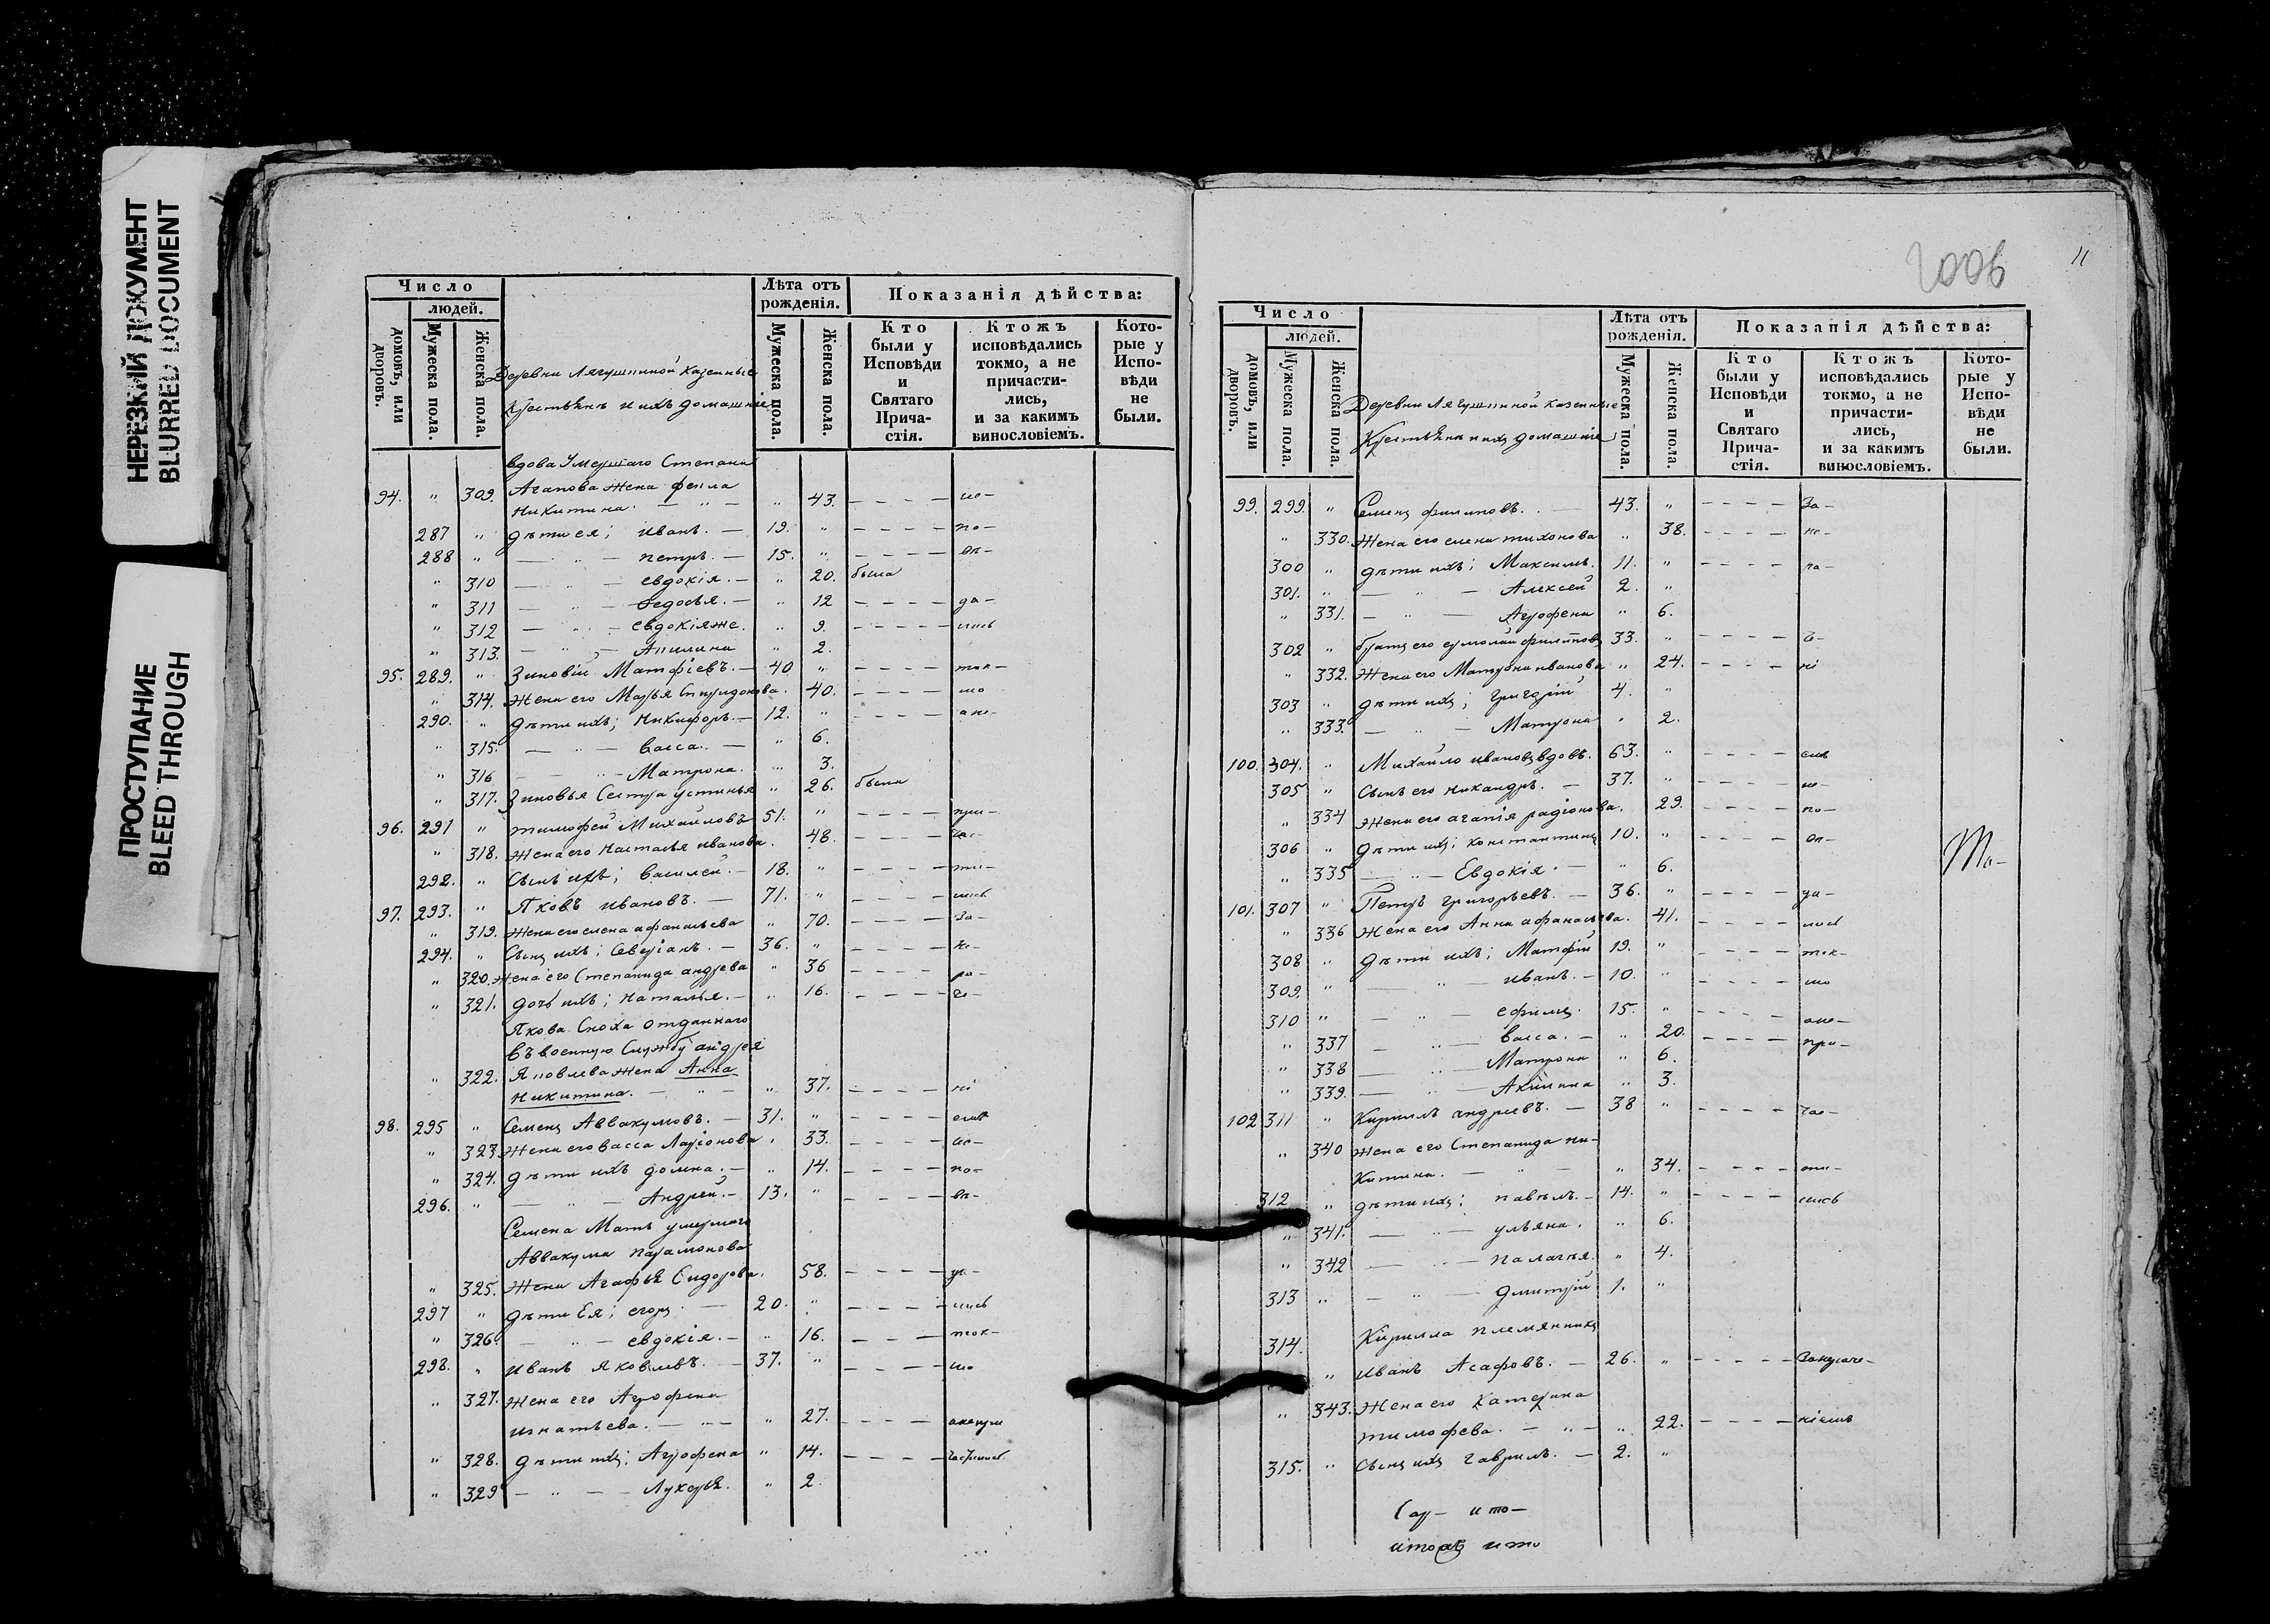 НЕРЕЗКИЙ ДОКУМЕНТ
BLURRED DOCUMENT
ПРОСТУПАНИЕ
BLEED THROUGH
Число
людей.
домовъ, или дворовъ.
Мужеска пола.
Женска пола.
Деревни Лягушиной казенные
Крестьянъ и ихъ домашніе
Лѣта отъ рожденія.
Мужеска пола.
Женска пола.
Показанія дѣйства:
Кто были у Исповѣди и Святаго Прича-стія.
Ктожъ исповѣдались токмо, а не причасти-лись, и за какимъ винословіемъ.
Кото-рые у Испо-вѣди не были.
вдова Умершаго Степана
94. " 309. Агапова жена
Никитина. — " — " 43. – – – –
287 " дѣти ея; иванъ. — 19. " – – – – по-
288 " — " — петръ. — 15. " – – – –
" 310 — " — евдокія. — " 20. была
" 311 — " — Федосья. — " 12 – – – – да-
" 312 — " — евдокіяже. " 9. – – – – лись
" 313. — " — Акилина " 2.
95. 289. " Зиновій Матфіевъ. — 40 " – – – – ток-
" 314. Жена его Марья Спиридонова. 40. – – – – мо
290. " дѣти ихъ; Никифоръ. — 12. " – – – – ане-
" 315. — " — Васса. — " 6.
" 316 — " — Матрона. " 3.
" 317. Зиновья Сестра устинья " 26. была
96. 291 " тимофей Михайловъ 51. " – – – – при-
" 318. Жена его Наталья иванова. 48. – – – – час-
292. " Сынъ ихъ; Василей. — 18. " – – – – ти-
97. 293. " Яковъ ивановъ. — 71. " – – – – лись
" 319. Жена его елена афанасьева " 70. – – – – За-
294. " Сынъ ихъ; Северіанъ. — 36. " – – – –
" 320. Жена его Степанида андрева " 36 – – – –
" 321. дочь ихъ; Наталья. — " 16. – – – –
Якова Сноха отданнаго
въ военную Службу андрея
" 322. Яковлева жена Анна
Никитина. — " — " 37. – – – – ні
98. 295 " Семенъ Аввакумовъ. — 31. " – – – – емъ
" 323. Жена его Васса Ларіонова " 33. – – – – ис-
" 324. дѣти ихъ домна. — " 14. – – – – по-
296. " — " — Андрей. — 13. " – – – – вѣ-
Семена Мать умершаго
Аввакума парамонова
" 325. Жена Агафья Сидорова. 58. – – – – да-
297 " дѣти Ея; егоръ. — 20. " – – – – лись
" 326. — " — евдокія. — " 16. – – – ток-
298. " иванъ Яковлевъ. — 37. " – – – – мо
" 327. Жена его Агрофена
игнатьева. — " — " 27. – – – – анепри
" 328. дѣти ихъ; Агрофена " 14. – – – – частились
" 329 — " — Лукерья. " 2.
2006
11
Число
людей.
домовъ, или дворовъ.
Мужеска пола.
Женска пола.
Деревни Лягушиной казенные
Крестьянъ и ихъ домашніе
Лѣта отъ рожденія.
Мужеска пола.
Женска пола.
Показанія дѣйства:
Кто были у Исповѣди и Святаго Прича-стія.
Ктожъ исповѣдались токмо, а не причасти-лись, и за какимъ винословіемъ.
Кото-рые у Испо-вѣди не были.
99. 299. " Семенъ филиповъ. — 43. " – – – – За-
" 330. Жена его елена тихонова " 38. – – – – не-
300 " дѣти ихъ; Максимъ. 11. " – – – –
301. " — " — Алексей 2. "
" 331. — " — Агрофена " 6.
302 " братъ его ермолай филиповъ 33. " – – – –
" 332. Жена его Матрона иванова " 24. – – – – ні
303 " дѣти ихъ; григорій 4. "
" 333. — " — Матрона " 2.
100. 304. " Михайло ивановъ вдовъ. 63. " – – – – емъ
305 " Сынъ его никандръ. — 37. " – – – – ис-
" 334 Жена его агапія радіонова. 29. – – – – по-
306 " дѣти ихъ; константинъ 10. " – – – – вѣ-
" 335 — " — Евдокія. — " 6.
101. 307 " Петръ григорьевъ. — 36. " – – – – да-
" 336 Жена его Анна афанасьева. 41. – – – – лись
308 " дѣти ихъ; Матфій 19. " – – – – ток-
309. " — " — иванъ. — 10. " – – – – мо
310 " — " — ефимъ. 15. " – – – – ане-
" 337 — " — Васса. — " 20. – – – – при-
" 338 — " — Матрона " 6.
" 339. — " — Акилина " 3.
102 311 " Кирилъ андреевъ. — 38 " – – – – час-
" 340 Жена его Степанида ни-
китина. — " — " 34. – – – – ти-
312 " дѣти ихъ; павелъ. — 14. " – – – – лись
" 341. — " — ульяна. " 6.
" 342 — " — палагья. " 4.
313 " — " — дмитрій 1. "
314. Кирилла племянникъ
" иванъ Асафовъ. — 26. " – – – –
" 343. Жена его Катерина
тимофева. — " — " 22. – – – – ніемъ
315. " Сынъ ихъ гаврилъ. — 2. "